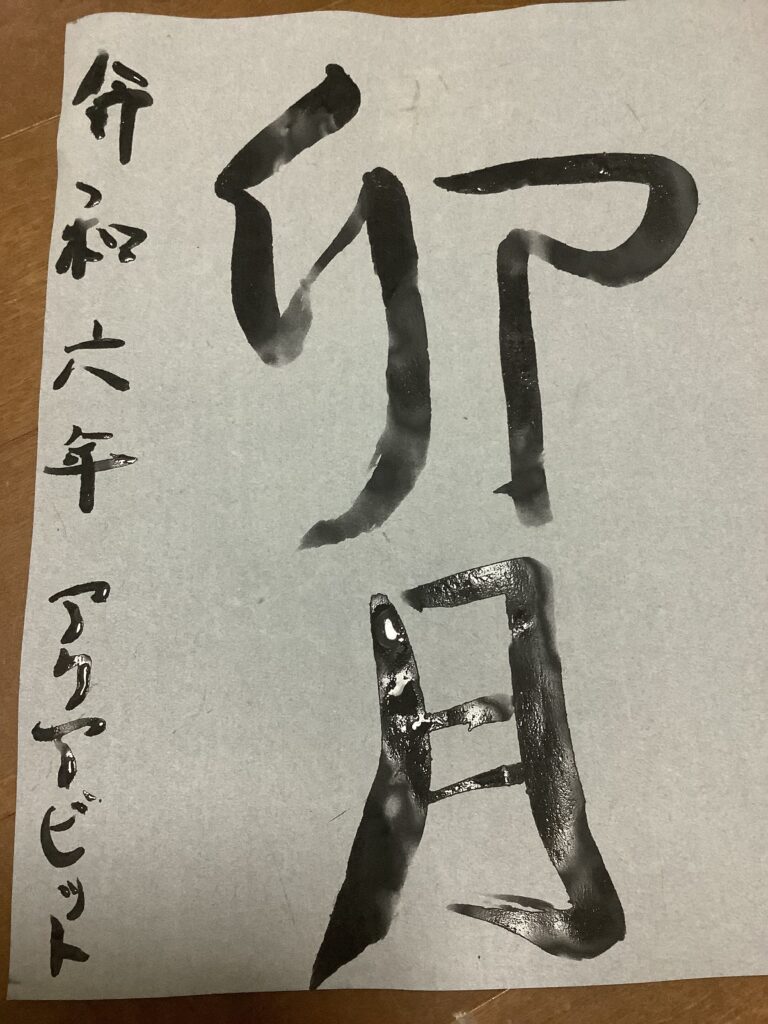 卯月
令和六年 アクアビット